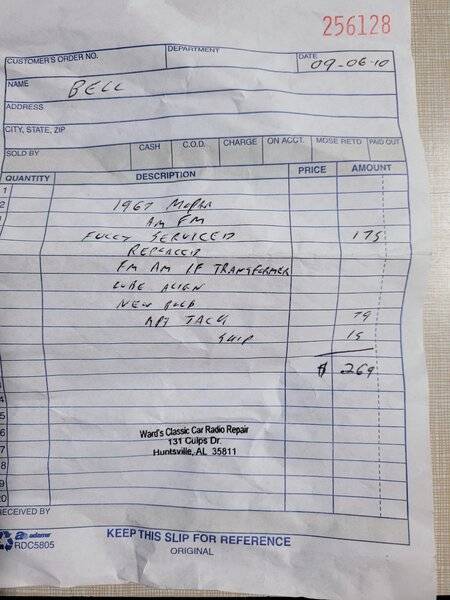 256128
CUSTOMER'S ORDER NO. DEPARTMENT DATE 09-06-10
NAME BELL
ADDRESS
CITY, STATE, ZIP
SOLD BY CASH C.O.D. CHARGE ON ACCT. MDSE RETD PAID OUT
QUANTITY DESCRIPTION PRICE AMOUNT
1
2 1967 MOPAR
3 AM FM
FULLY SERVICED 175
REPLACED
FM AM IF TRANSFORMER
LUBE ALIGN
NEW BULB
TACH 79
SHIP 15
$ 269
Ward's Classic Car Radio Repair
131 Culps Dr.
Huntsville, AL 35811
RECEIVED BY
adams
RDC5805
KEEP THIS SLIP FOR REFERENCE
ORIGINAL